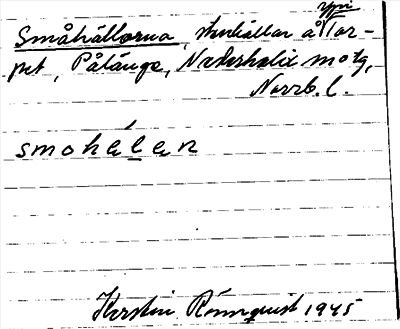 Småhällorna, stenhällar å Ytter-
pit, Pålänge, Nederkalix motg,
Norrb. l.
smohélen
Kerstin Rönnquist 1945